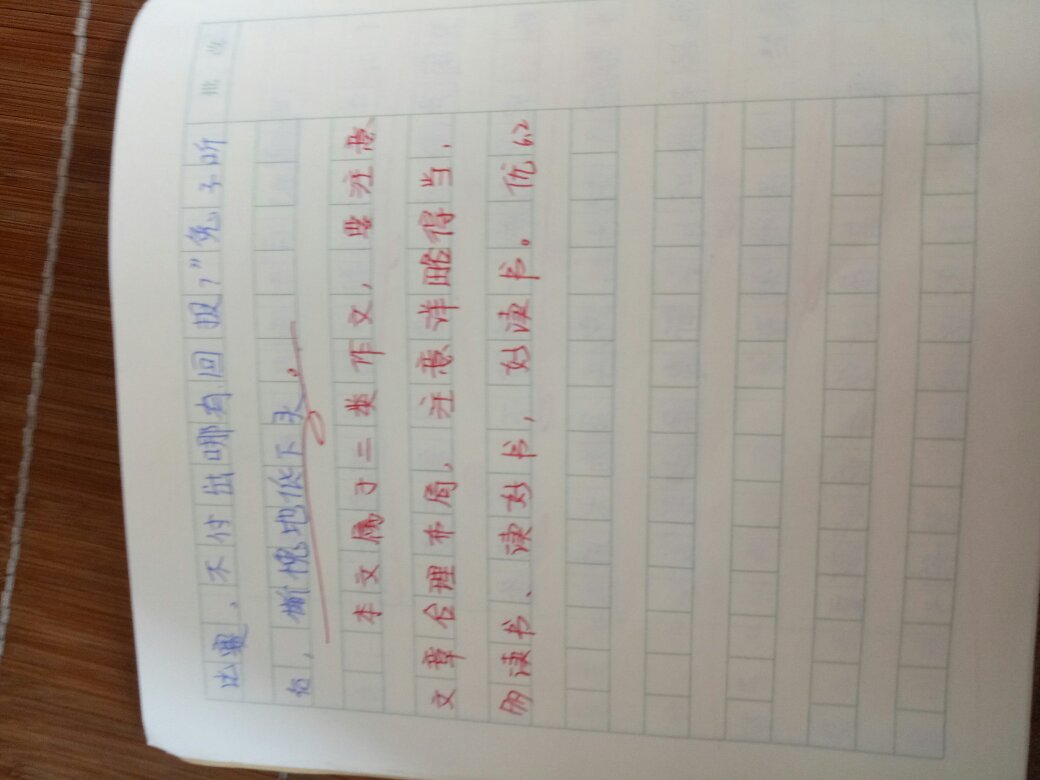 批改
比赛，不付出哪有回报？”兔子听
右，惭愧地低下头。
本文属于二类作文，要注意
文章合理布局，注意详略得当，
多读书、读好书，好读书。优 6.2